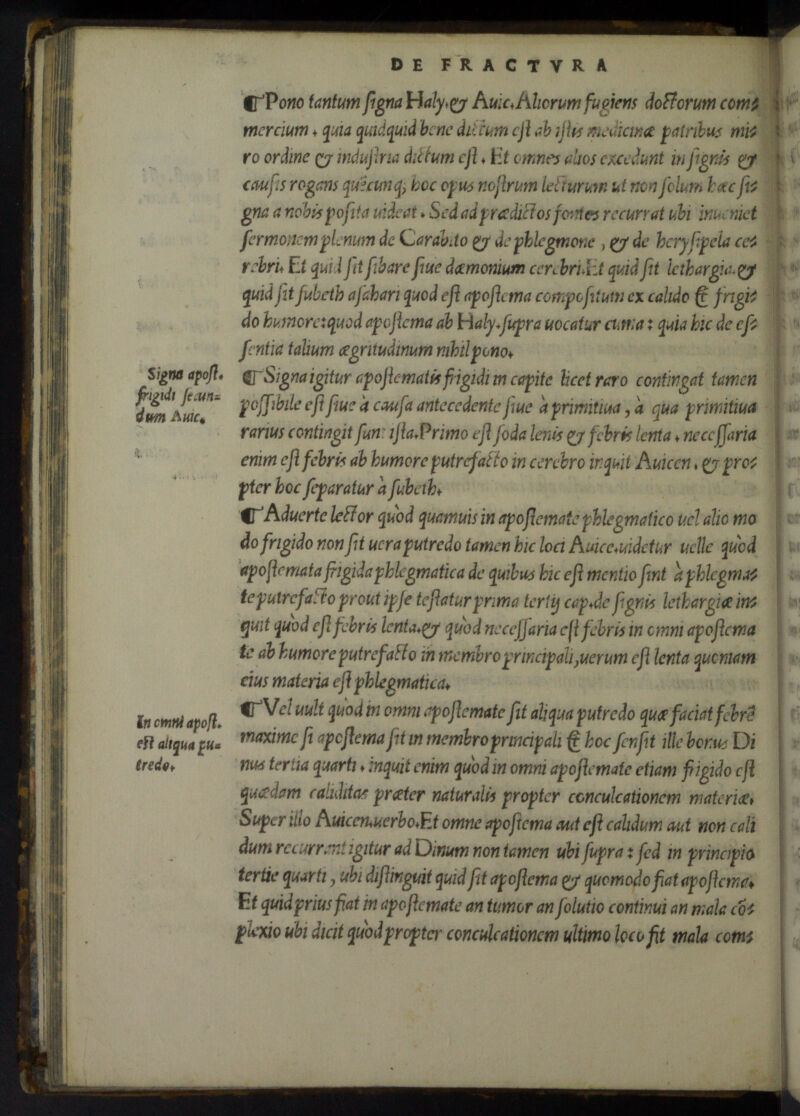 DE FRACTVRA
¶ Pono tantum ſigna Haly.& Auic.Aliorum fugiens doctorum com⸗
mercium. quia quidquid bene dictum eſt ab iſtis medicinæ patribus mi⸗
ro ordine & induſtria dictum eſt. Et omnes alios excedunt in ſignis &
cauſis rogans quẽcunq; hoc opus noſtrum lecturum ut non ſolum hæc ſi⸗
gna a nobis poſita uideat. Sed ad prædictos fontes recurrat ubi inueniet
ſermonem plenum de Carabito & de phlegmone, & de heryſipela ce⸗
rebri. Et quid ſit ſibare ſiue dæmonium cerebri.Et quid ſit lethargia.&
quid ſit ſubeth aſahari quod eſt apoſtema compoſitum ex calido & frigi⸗
do humore: quod apoſtema ab Haly.ſupra uocatur cuma: quia hic de eſ⸗
ſentia talium ægritudinum nihil pono.
Signa apoſt.
frigidi ſecun⸗
dum Auic.
¶ Signa igitur apoſtematis frigidi in capite licet raro contingat tamen
poſſibile eſt ſiue à cauſa antecedente ſiue à primitiua, à qua primitiua
rarius contingit ſunt iſta.Primo eſt ſoda lenis & febris lenta. neceſſaria
enim eſt febris ab humore putrefacto in cerebro inquit Auicen. & pro⸗
pter hoc ſeparatur à ſubeth.
¶ Aduerte lector quòd quamuis in apoſtemate phlegmatico uel alio mo
do frigido non ſit uera putredo tamen hic loci Auice.uidetur uelle quòd
apoſtemata frigida phlegmatica de quibus hic eſt mentio ſint à phlegma⸗
te putrefacto prout ipſe teſtatur prima tertij cap.de ſignis lethargiæ in⸗
quit quòd eſt febris lenta.& quòd neceſſaria eſt febris in omni apoſtema
te ab humore putrefacto in membro principali,uerum eſt lenta quoniam
eius materia eſt phlegmatica.
In omni apoſt.
eſt aliqua pu⸗
tredo.
¶ Vel uult quòd in omni apoſtemate ſit aliqua putredo quæ faciat febrẽ
maxime ſi apoſtema ſit in membro principali & hoc ſenſit ille bonus Di
nus tertia quarti. inquit enim quòd in omni apoſtemate etiam frigido eſt
quædam caliditas præter naturalis propter conculcationem materiæ.
Super illo Auicen.uerbo.Et omne apoſtema aut eſt calidum aut non cali
dum recurrant igitur ad Dinum non tamen ubi ſupra: ſed in principio
tertie quarti, ubi diſtinguit quid ſit apoſtema & quomodo fiat apoſtema.
Et quid prius fiat in apoſtemate an tumor an ſolutio continui an mala cõ⸗
plexio ubi dicit quòd propter conculcationem ultimo loco fit mala com⸗